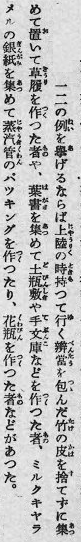 一二の例を擧げるならば上陸の時持つて行く辨當を包んだ竹の皮を捨てずに集
めて置いて草履を作つた者や、葉書を集めて土瓶敷や手文庫などを作つた者、ミルクキャラ
メルの銀紙を集めて蒸汽管のパッキングを作つたり、花瓶を作つた者などがあつた。